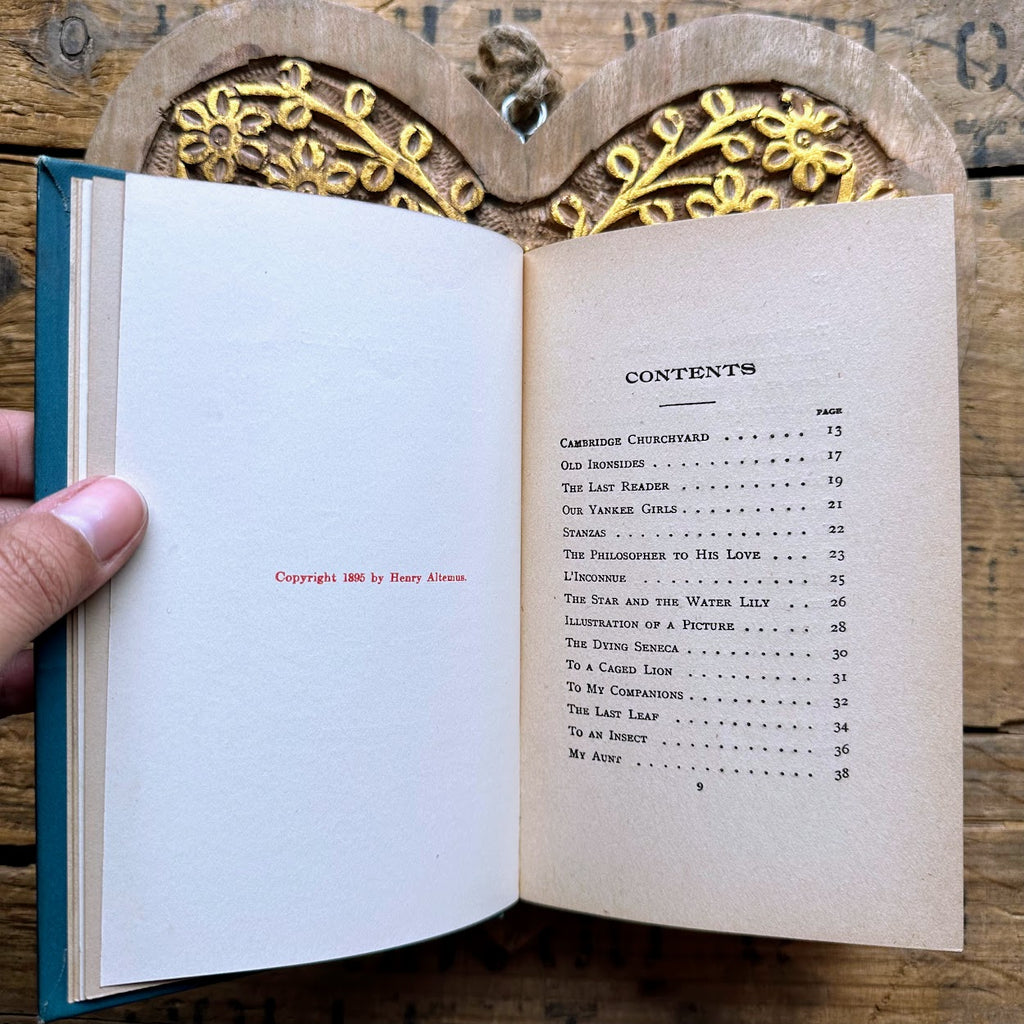 Copyright 1895 by Henry Altemus.
CONTENTS
PAGE
CAMBRIDGE CHURCHYARD . . . . . . 13
OLD IRONSIDES . . . . . . . . . . . 17
THE LAST READER . . . . . . . . . 19
OUR YANKEE GIRLS . . . . . . . . . 21
STANZAS . . . . . . . . . . . . . 22
THE PHILOSOPHER TO HIS LOVE . . . 23
L'INCONNUE . . . . . . . . . . . . 25
THE STAR AND THE WATER LILY . . 26
ILLUSTRATION OF A PICTURE . . . . . 28
THE DYING SENECA . . . . . . . . . 30
TO A CAGED LION . . . . . . . . . 31
TO MY COMPANIONS . . . . . . . . . 32
THE LAST LEAF . . . . . . . . . . 34
TO AN INSECT . . . . . . . . . . . 36
MY AUNT . . . . . . . . . . . . . 38
9